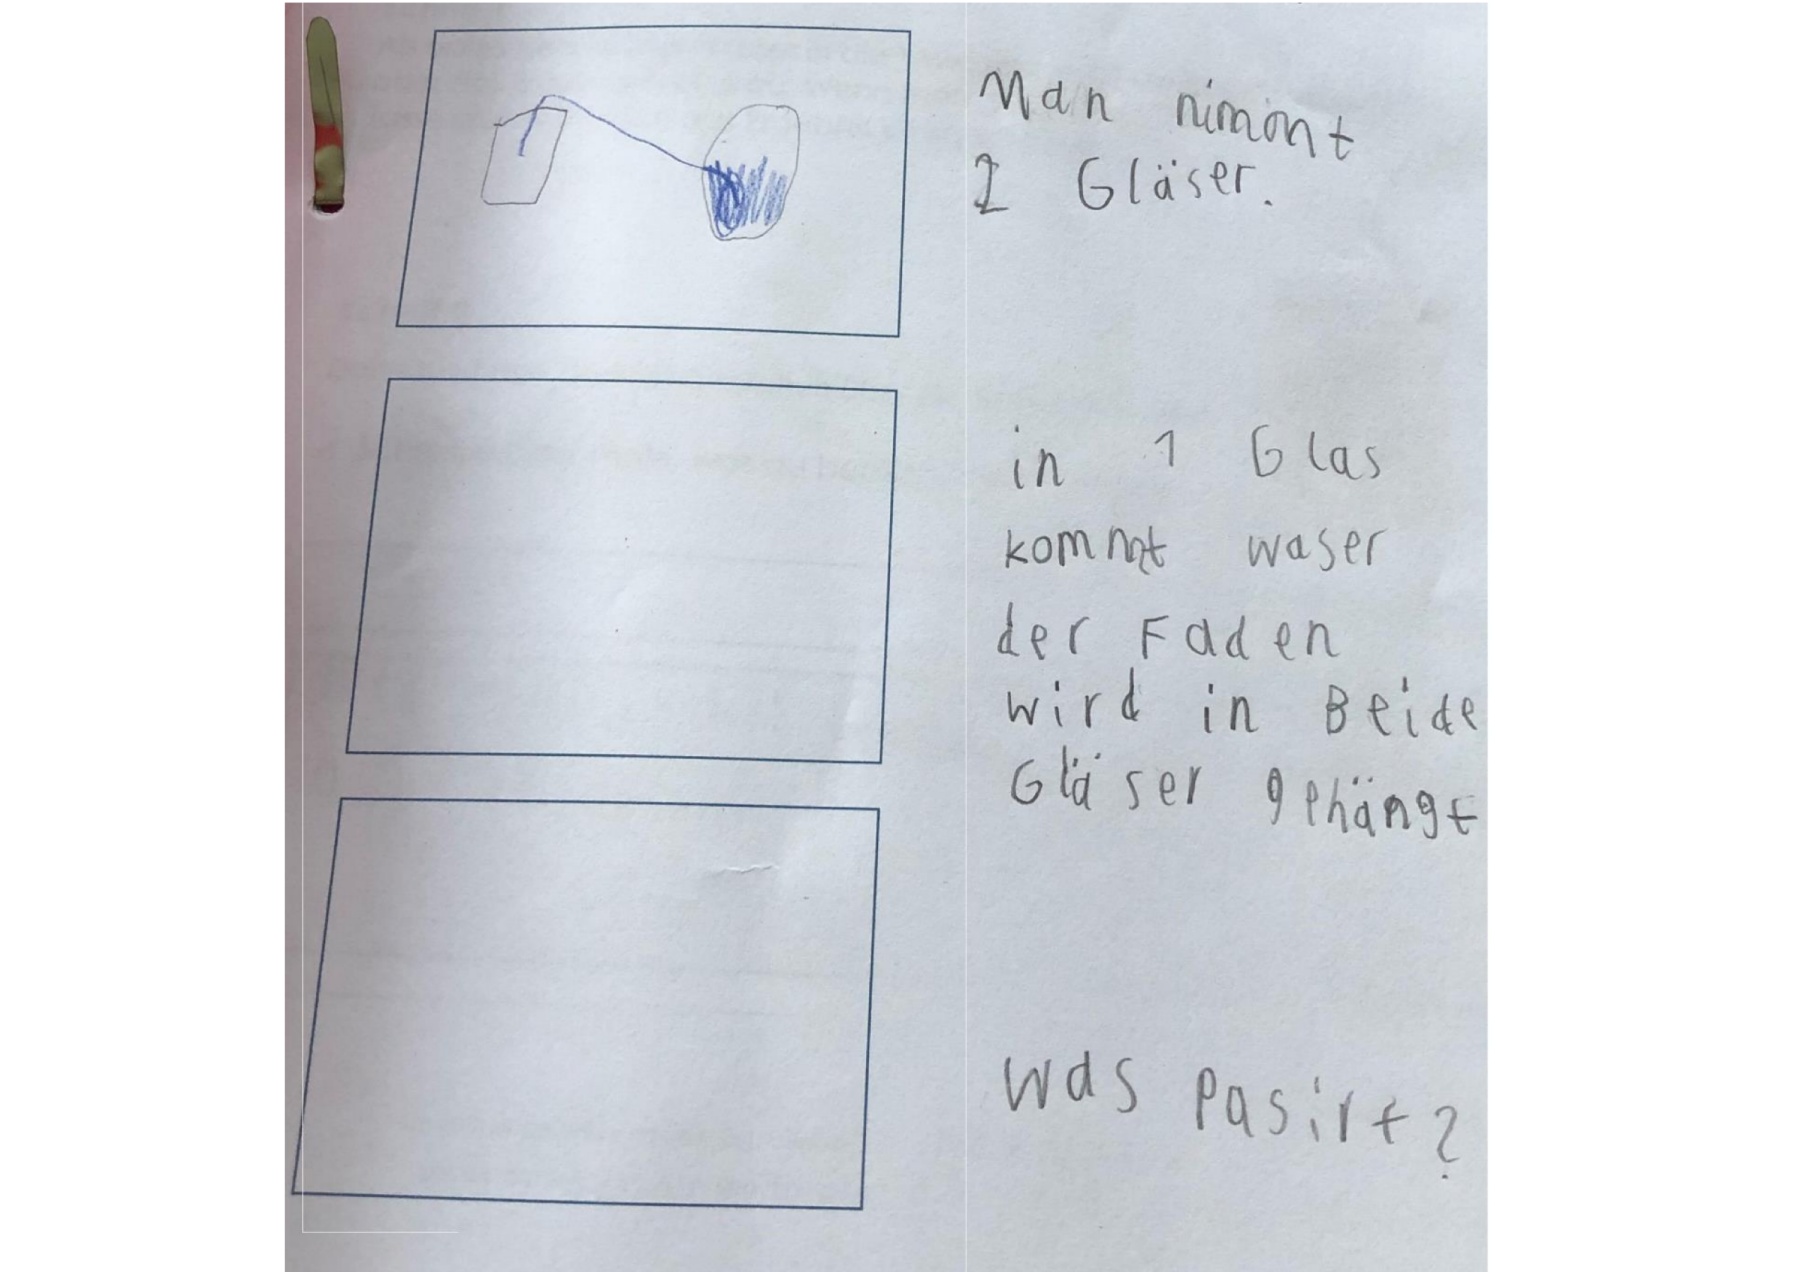 Man nimmt
2 Gläser.
in 1 Glas
kommt waser
der Faden
wird in Beide
Gläser gehängt
was Pasirt?